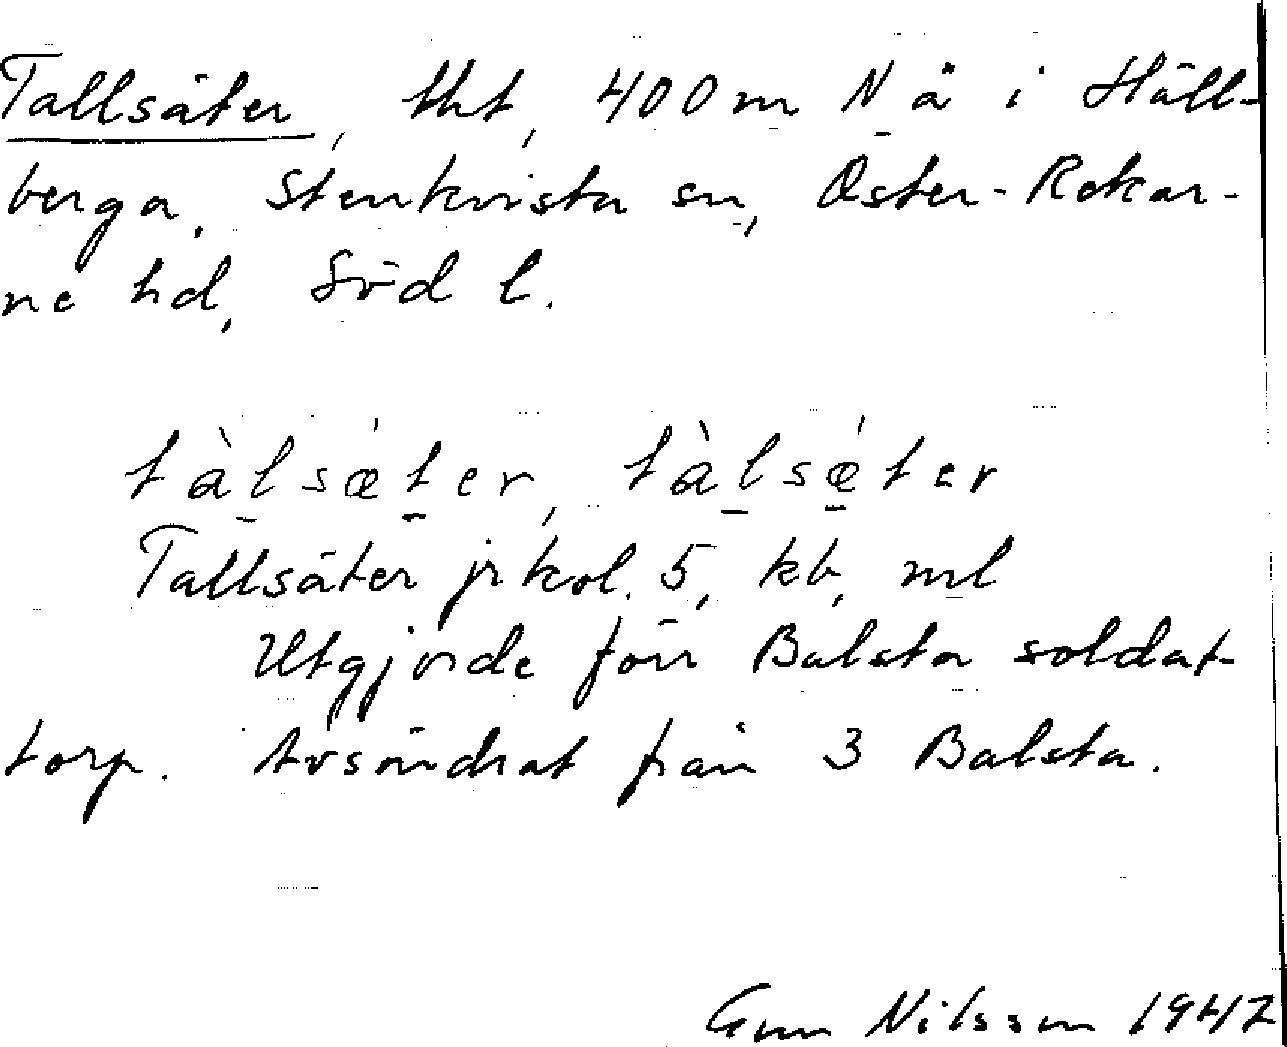 Tallsäter, lht, 400 m N å i Häll-
berga, Stenkvista sn, Öster-Rekar-
ne hd, Södl.
tàlsǽter, tàlsǽter
Tallsäter jrkol. 5, kb, ml
Utgjorde förr Balsta soldat-
torp. Avsöndrat från 3 Balsta.
Gun Nilsson 1947